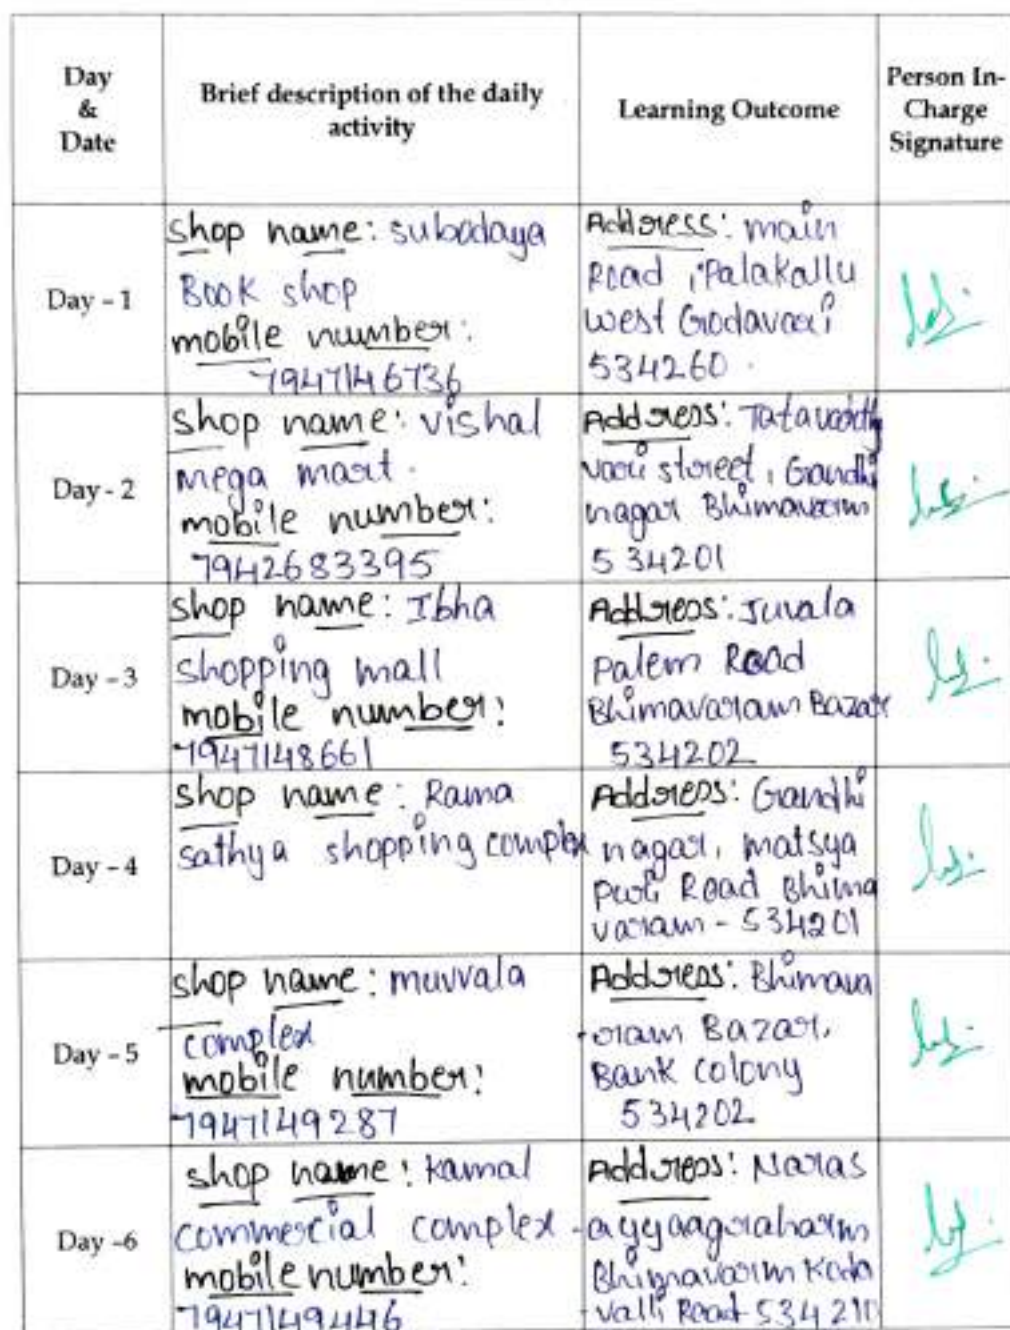 Day
&
Date
Brief description of the daily
activity
Learning Outcome
Person In-
Charge
Signature
Day - 1
shop name: subodaya
Book shop
mobile number:
7947146736
Address: main
Road, Palakallu
west Godavari
534260.
Day - 2
shop name: vishal
mega mart.
mobile number:
7942683395
Address: Tatavarthy
vari street, Gandhi
nagar Bhimavarm
534201
Day - 3
shop name: Ibha
shopping mall
mobile number:
7947148661
Address: Juvala
palem Road
Bhimavaram Bazar
534202
Day - 4
shop name: Rama
sathya shopping complex
Address: Gandhi
nagar, matsya
puri Road Bhima
varam - 534201
Day - 5
shop name: muvvala
complex
mobile number:
7947149287
Address: Bhimava
-ram Bazar,
Bank colony
534202
Day -6
shop name: kamal
commercial complex
mobile number:
7947149446
Address: Naras
-ayyaagraharm
Bhimavarm Koda
valli Road 534210